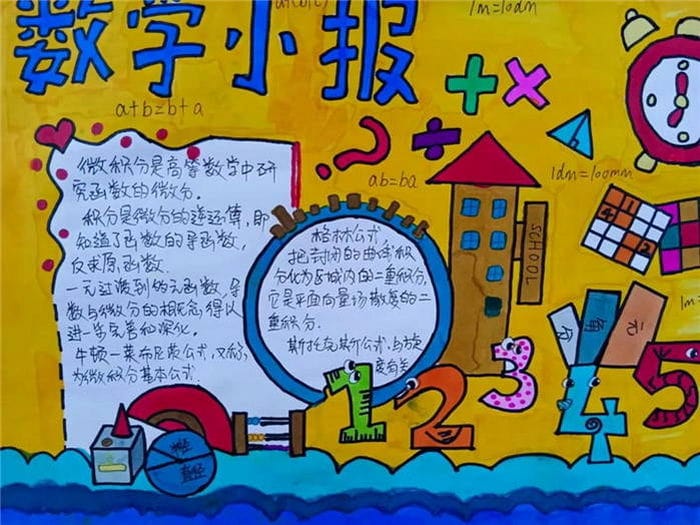 数学小报
a+(b(c)
1m=10dm
a+b=b+a
ab=ba
1dm=100mm
微积分是高等数学中研
究函数的微分.
积分是微分的逆运算,即
知道了函数的导函数,
反求原函数.
一元过渡到多元函数,导
数与微分的概念得以
进一步完善和深化.
牛顿一莱布尼茨公式,又称
为微积分基本公式.
格林公式
把封闭的曲线积
分化为区域内的二重积分,
它是平面向量场散度的二
重积分.
斯托克斯公式,与旋
度有关
SCHOOL
分
角
元
1m=
1
2
3
4
5
半径
直径